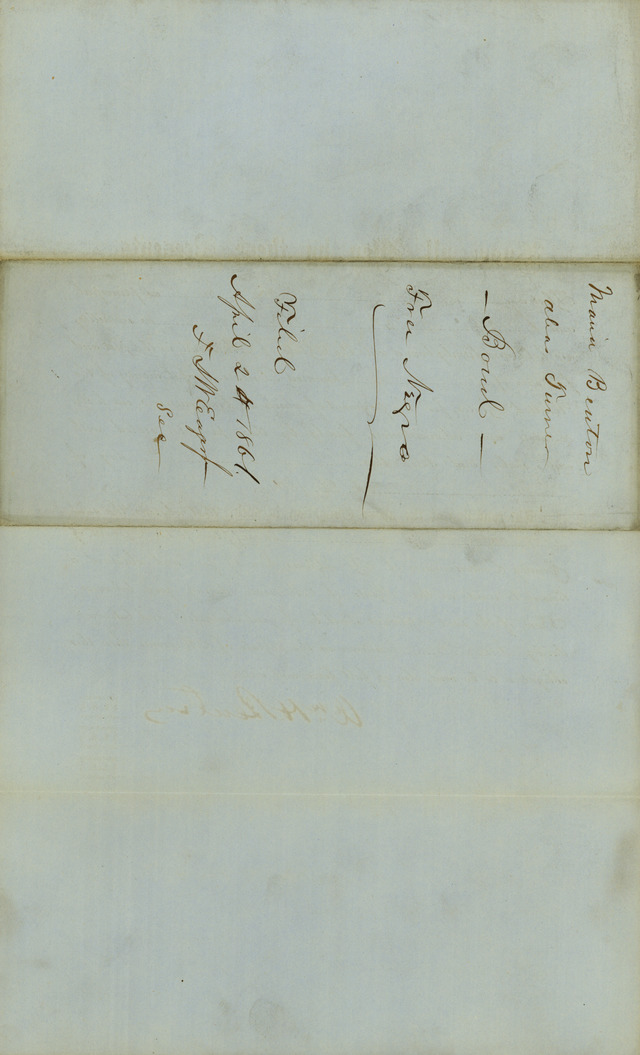 Maria Benton
alias Turner
— Bond —
Free Negro
Filed
April 24 1861
Sec